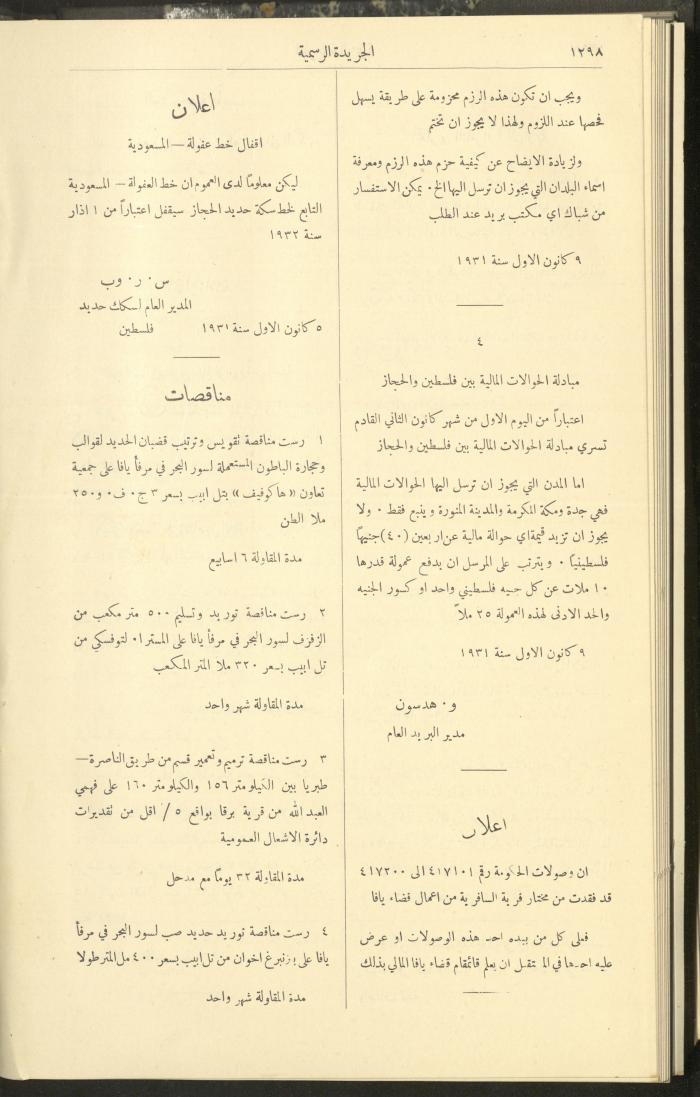 ١٢٩٨
الجريدة الرسمية
ويجب ان تكون هذه الرزم محزومة على طريقة يسهل
فحصها عند اللزوم ولهذا لا يجوز ان تختم
ولزيادة الايضاح عن كيفية حزم هذه الرزم ومعرفة
اسماء البلدان التي يجوز ان ترسل اليها الخ٠ يمكن الاستفسار
من شباك اي مكتب بريد عند الطلب
٩ كانون الاول سنة ١٩٣١
٤
مبادلة الحوالات المالية بين فلسطين والحجاز
اعتباراً من اليوم الاول من شهر كانون الثاني القادم
تسري مبادلة الحوالات المالية بين فلسطين والحجاز
اما المدن التي يجوز ان ترسل اليها الحوالات المالية
فهي جدة ومكة المكرمة والمدينة المنورة وينبع فقط ٠ ولا
يجوز ان تزيد قيمة اي حوالة مالية عن اربعين (٤٠) جنيهاً
فلسطينياً ٠ ويترتب على المرسل ان يدفع عمولة قدرها
١٠ ملات عن كل جنيه فلسطيني واحد او كسور الجنيه
والحد الادنى لهذه العمولة ٢٥ ملاً
٩ كانون الاول سنة ١٩٣١
و٠ هدسون
مدير البريد العام
اعلان
ان وصولات الحكومة رقم ٤١٧١٠١ الى ٤١٧٢٠٠
قد فقدت من مختار قرية السافرية من اعمال قضاء يافا
فعلى كل من بيده احد هذه الوصولات او عرض
عليه احدها في المستقبل ان يعلم قائمقام قضاء يافا المالي بذلك
اعلان
اقفال خط عفولة – المسعودية
ليكن معلوماً لدى العموم ان خط العفولة – المسعودية
التابع لخط سكة حديد الحجاز سيقفل اعتباراً من ١ اذار
سنة ١٩٣٢
س٠ ر٠ وب
المدير العام لسكك حديد
فلسطين
٥ كانون الاول سنة ١٩٣١
مناقصات
١ رست مناقصة تقويس وترتيب قضبان الحديد لقوالب
وحجارة الباطون المستعملة لسور البحر في مرفأ يافا على جمعية
تعاون «هاكوفيف» بتل ابيب بسعر ٣ ج٠ ف٠ و ٢٥٠
ملا الطن
مدة المقاولة ٦ اسابيع
٢ رست مناقصة توريد وتسليم ٥٠٠ متر مكعب من
الزفزف لسور البحر في مرفأ يافا على المستر ا٠ لتوفسكي من
تل ابيب بسعر ٣٢٠ ملا المتر المكعب
مدة المقاولة شهر واحد
٣ رست مناقصة ترميم وتعمير قسم من طريق الناصرة –
طبريا بين الكيلومتر ١٥٦ والكيلومتر ١٦٠ على فهمي
العبد الله من قرية برقا بواقع ٥ /٠ اقل من تقديرات
دائرة الاشغال العمومية
مدة المقاولة ٣٢ يوماً مع مدحل
٤ رست مناقصة توريد حديد صب لسور البحر في مرفأ
يافا على اخوان من تل ابيب بسعر ٤٠٠ مل المتر طولا
مدة المقاولة شهر واحد